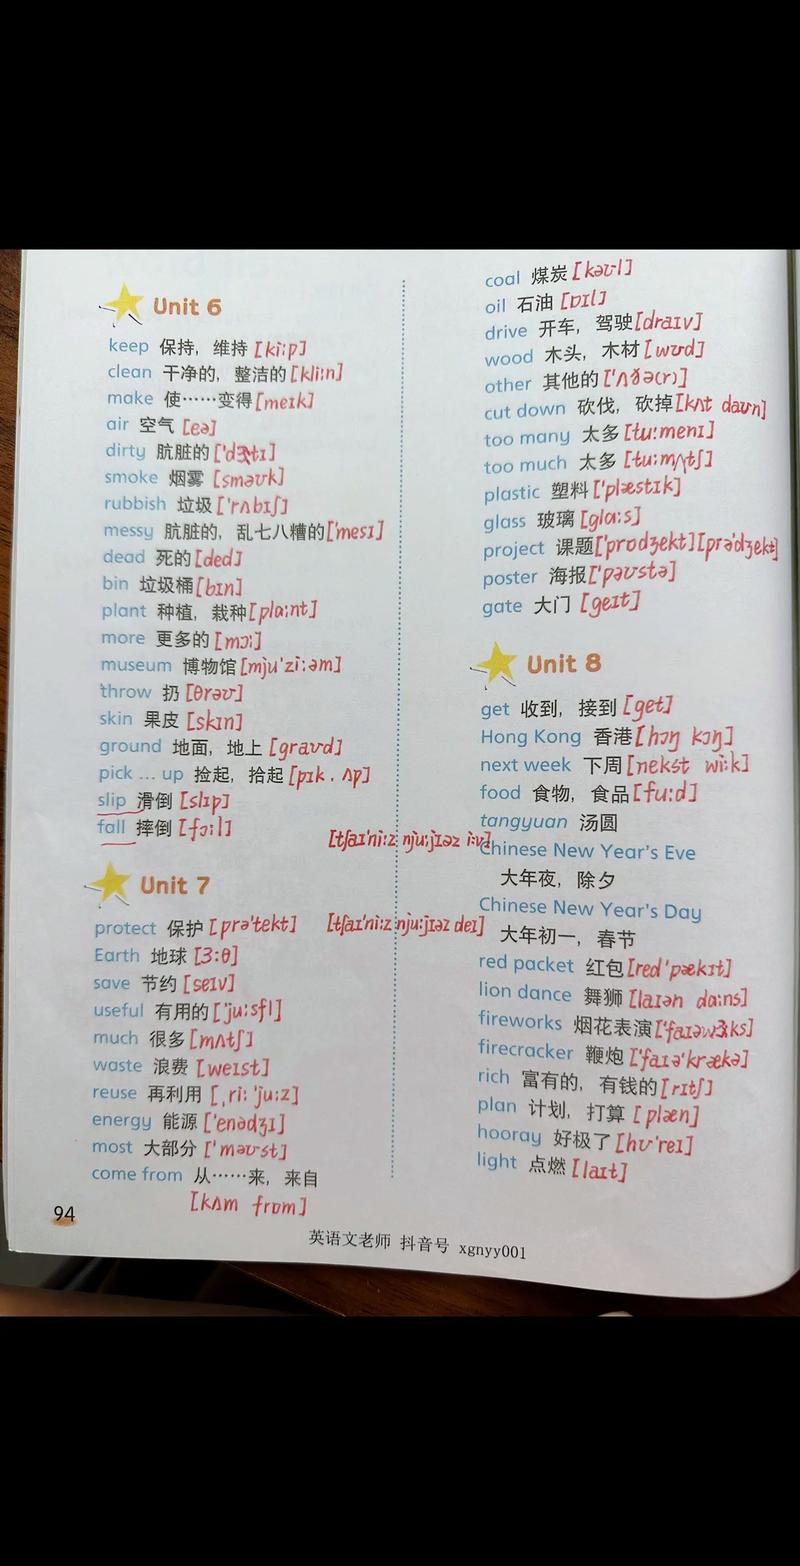 Unit 6
keep 保持，维持 [ki:p]
clean 干净的，整洁的 [kli:n]
make 使……变得 [meɪk]
air 空气 [eə]
dirty 肮脏的 ['dɜ:tɪ]
smoke 烟雾 [sməʊk]
rubbish 垃圾 ['rʌbɪʃ]
messy 肮脏的，乱七八糟的 ['mesɪ]
dead 死的 [ded]
bin 垃圾桶 [bɪn]
plant 种植，栽种 [plɑ:nt]
more 更多的 [mɔ:]
museum 博物馆 [mju'zi:əm]
throw 扔 [θrəʊ]
skin 果皮 [skɪn]
ground 地面，地上 [graʊd]
pick ... up 捡起，拾起 [pɪk . ʌp]
slip 滑倒 [slɪp]
fall 摔倒 [fɔ:l]
Unit 7
protect 保护 [prə'tekt]
Earth 地球 [ɜ:θ]
save 节约 [seɪv]
useful 有用的 ['ju:sfl]
much 很多 [mʌtʃ]
waste 浪费 [weɪst]
reuse 再利用 [ˌri:'ju:z]
energy 能源 ['enədʒɪ]
most 大部分 ['məʊst]
come from 从……来，来自
[kʌm frɒm]
94
coal 煤炭 [kəʊl]
oil 石油 [ɒɪl]
drive 开车，驾驶 [draɪv]
wood 木头，木材 [wʊd]
other 其他的 ['ʌðə(r)]
cut down 砍伐，砍掉 [kʌt daʊn]
too many 太多 [tu:menɪ]
too much 太多 [tu:mʌtʃ]
plastic 塑料 ['plæstɪk]
glass 玻璃 [glɑ:s]
project 课题 ['prɒdʒekt] [prə'dʒekt]
poster 海报 ['pəʊstə]
gate 大门 [geɪt]
Unit 8
get 收到，接到 [get]
Hong Kong 香港 [hɔŋ kɔŋ]
next week 下周 [nekst wi:k]
food 食物，食品 [fu:d]
tangyuan 汤圆
[tʃaɪ'ni:z nju:jɪəz i:v]
Chinese New Year's Eve
大年夜，除夕
Chinese New Year's Day
[tʃaɪ'ni:z nju:jɪəz deɪ]
大年初一，春节
red packet 红包 [red'pækɪt]
lion dance 舞狮 [laɪən dɑ:ns]
fireworks 烟花表演 ['faɪəwɜ:ks]
firecracker 鞭炮 ['faɪə'krækə]
rich 富有的，有钱的 [rɪtʃ]
plan 计划，打算 [plæn]
hooray 好极了 [hʊ'reɪ]
light 点燃 [laɪt]
英语文老师 抖音号 xgnyy001